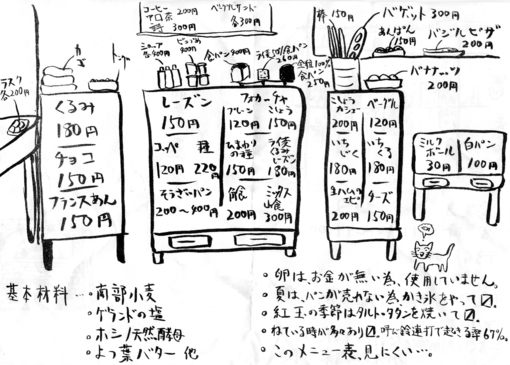 コーヒー 200円
300円
ベーグルサンド
各300円
棒 150円
バゲット 300円
あんぱん
150円
バジルピザ
200円
バナナッツ
200円
ラスク
各200円
カゴ
トング
食パン 400円
250円
くるみ
180円
チョコ
150円
フランスあん
150円
レーズン
150円
コッペ
120円
種
220円
そうざいパン
200〜400円
フォカーチャ
プレーン
120円
こしょう
150円
ひまわり
の種
150円
ライ麦
くるみ
レーズン
180円
角食
200円
ミックス
山食
300円
こしょう
カシュー
200円
ベーグル
120円
いち
じく
180円
いち
くる
180円
生ハム
エピ
200円
チーズ
150円
ミルク
ボール
30円
白パン
100円
基本材料…・南部小麦
・ゲランドの塩
・ホシノ天然酵母
・よつ葉バター 他
・卵は、お金が無い為、使用していません。
・夏は、パンが売れない為、かき氷をやって〼。
・紅玉の季節はタルト・タタンを焼いて〼。
・ねている時が多々あり〼。呼び鈴連打で起きる率67%。
・このメニュー表、見にくい…。